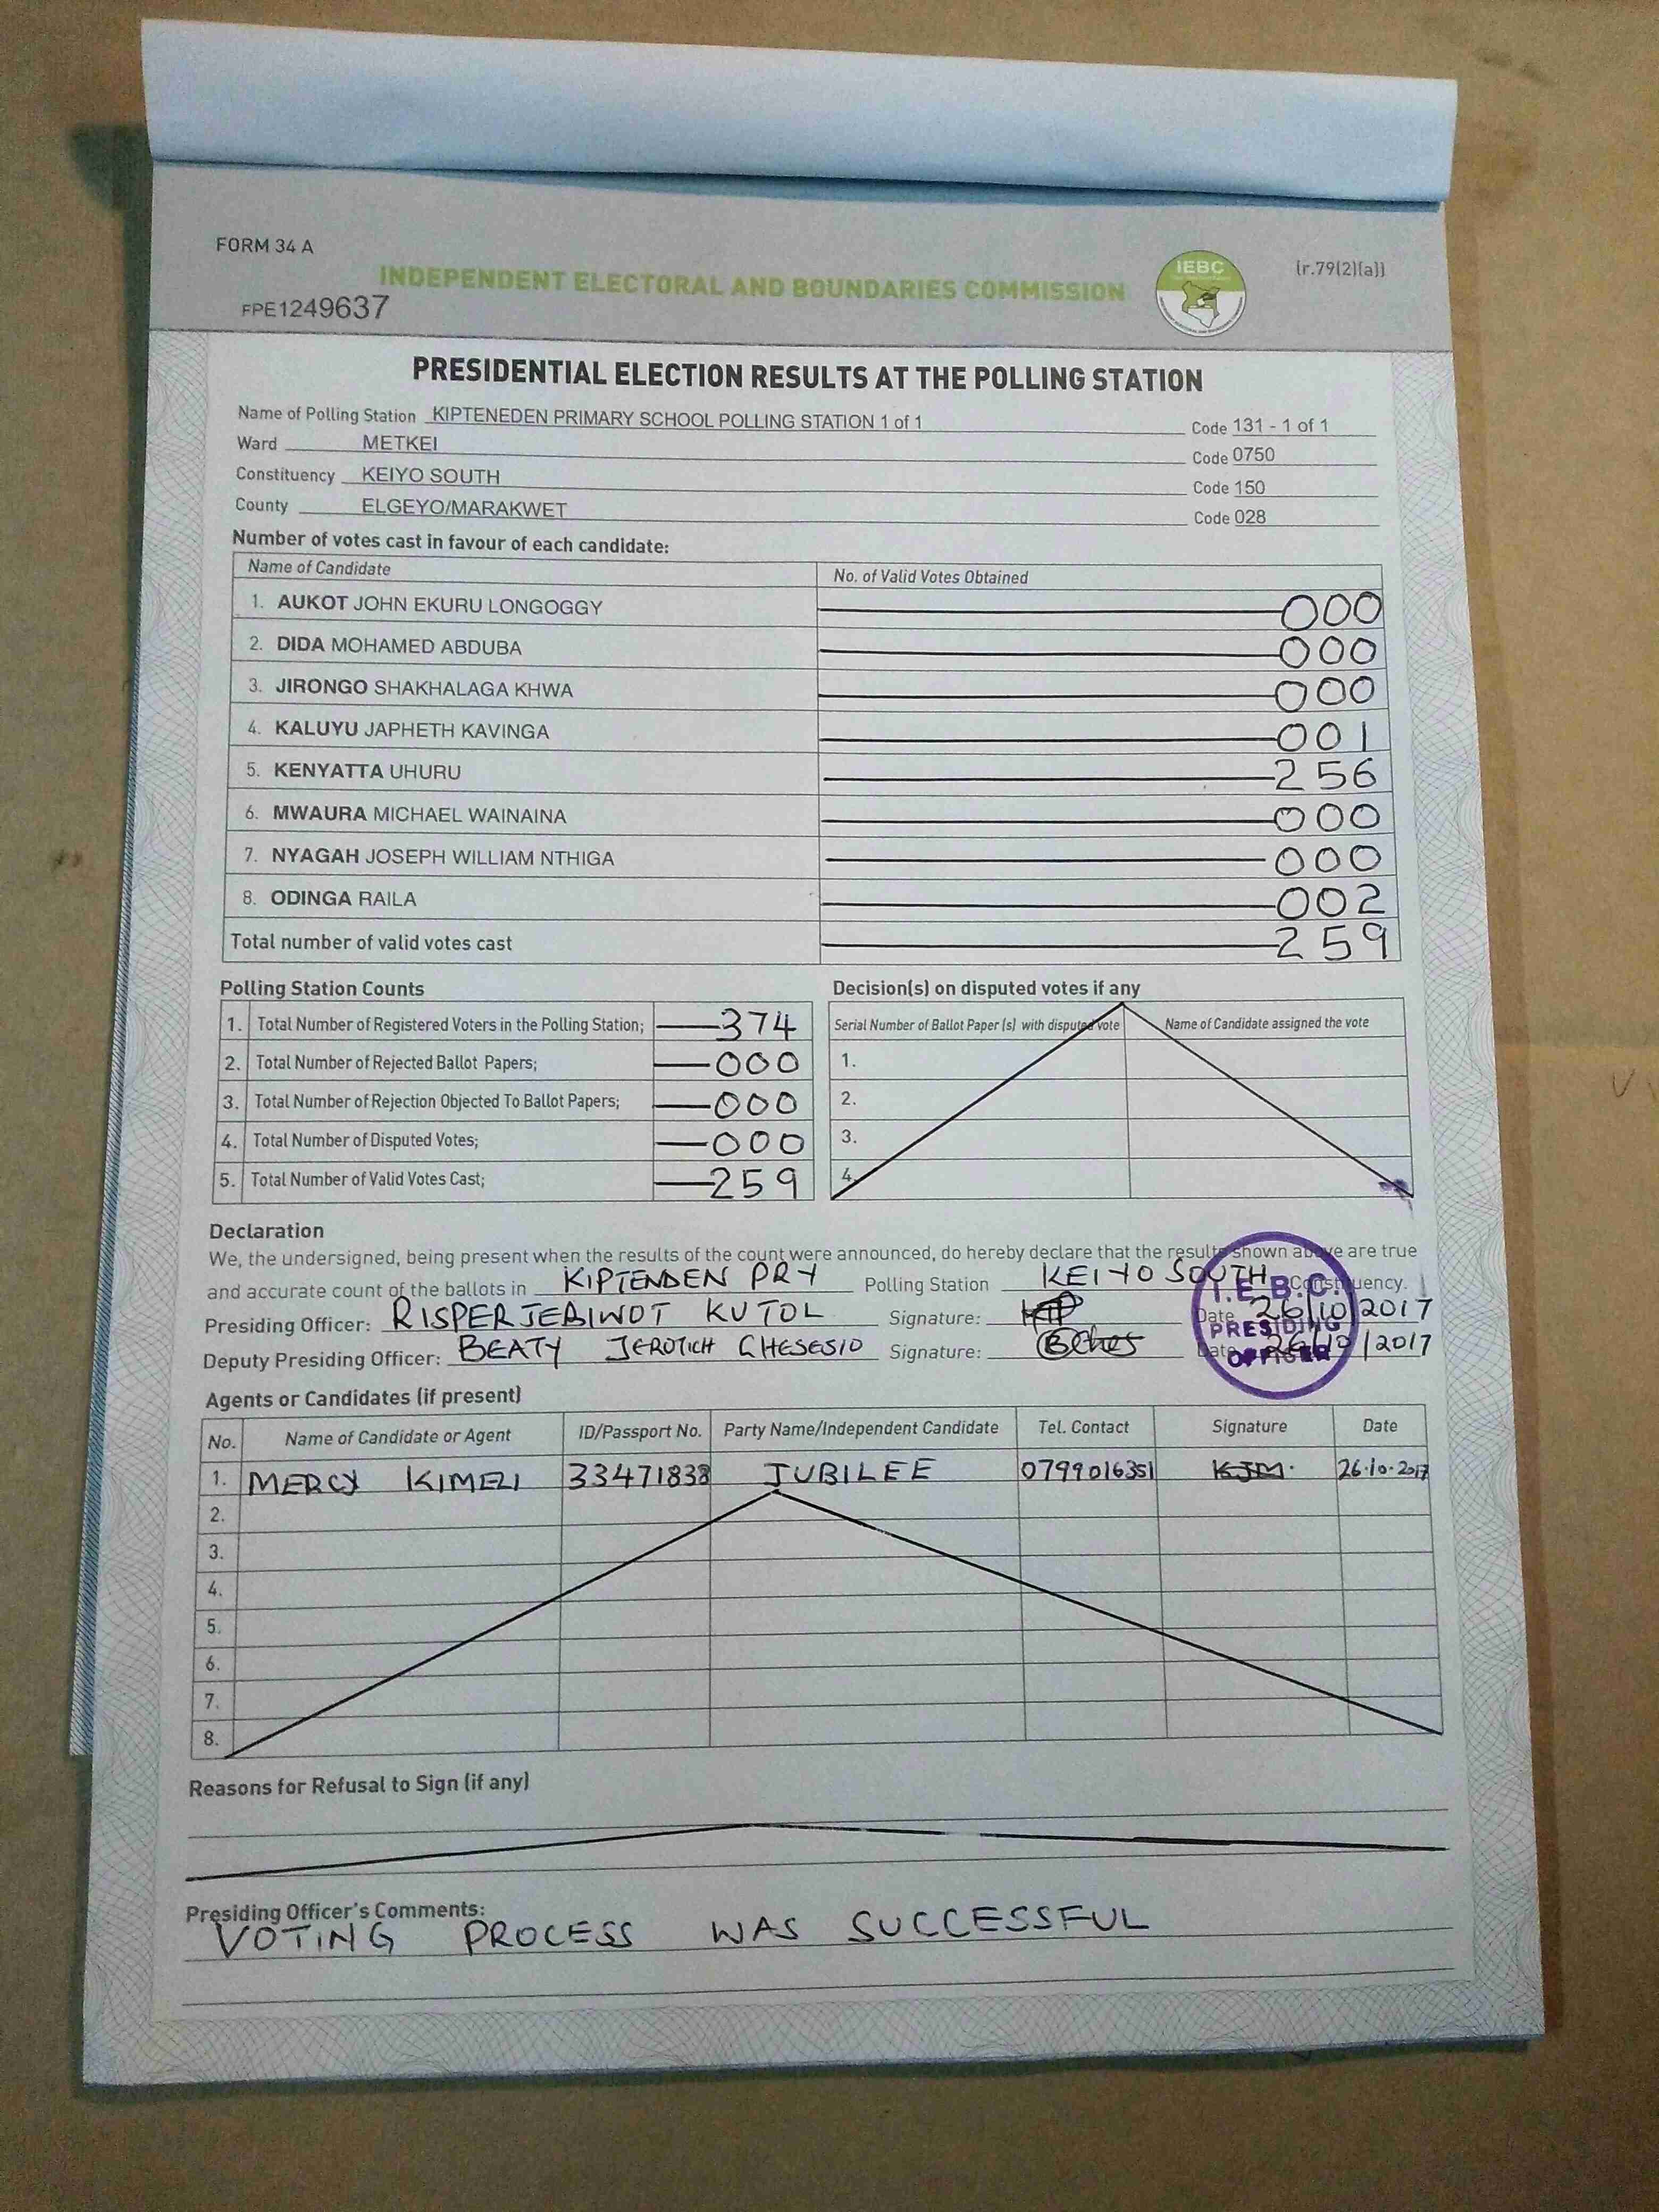 FORM 34 A
INDEPENDENT ELECTORAL AND BOUNDARIES COMMISSION
IEBC
(r.79(2)(a))
FPE1249637
PRESIDENTIAL ELECTION RESULTS AT THE POLLING STATION
Name of Polling Station KIPTENEDEN PRIMARY SCHOOL POLLING STATION 1 of 1 Code 131 - 1 of 1
Ward METKEI Code 0750
Constituency KEIYO SOUTH Code 150
County ELGEYO/MARAKWET Code 028
Number of votes cast in favour of each candidate:
Name of Candidate No. of Valid Votes Obtained
1. AUKOT JOHN EKURU LONGOGGY 000
2. DIDA MOHAMED ABDUBA 000
3. JIRONGO SHAKHALAGA KHWA 000
4. KALUYU JAPHETH KAVINGA 001
5. KENYATTA UHURU 256
6. MWAURA MICHAEL WAINAINA 000
7. NYAGAH JOSEPH WILLIAM NTHIGA 000
8. ODINGA RAILA 002
Total number of valid votes cast 259
Polling Station Counts
1. Total Number of Registered Voters in the Polling Station; 374
2. Total Number of Rejected Ballot Papers; 000
3. Total Number of Rejection Objected To Ballot Papers; 000
4. Total Number of Disputed Votes; 000
5. Total Number of Valid Votes Cast; 259
Decision(s) on disputed votes if any
Serial Number of Ballot Paper (s) with disputed vote Name of Candidate assigned the vote
1.
2.
3.
4.
Declaration
We, the undersigned, being present when the results of the count were announced, do hereby declare that the results shown above are true
and accurate count of the ballots in KIPTENDEN PRY Polling Station KEIYO SOUTH Constituency.
Presiding Officer: RISPER JEBIWOT KUTOL Signature: Date 26/10/2017
Deputy Presiding Officer: BEATY JEROTICH CHESESIO Signature: BChes Date 26/10/2017
I.E.B.C.
PRESIDING
OFFICER
Agents or Candidates (if present)
No. Name of Candidate or Agent ID/Passport No. Party Name/Independent Candidate Tel. Contact Signature Date
1. MERCY KIMELI 33471838 JUBILEE 0799016351 KJM. 26.10.2017
2.
3.
4.
5.
6.
7.
8.
Reasons for Refusal to Sign (if any)
Presiding Officer's Comments:
VOTING PROCESS WAS SUCCESSFUL